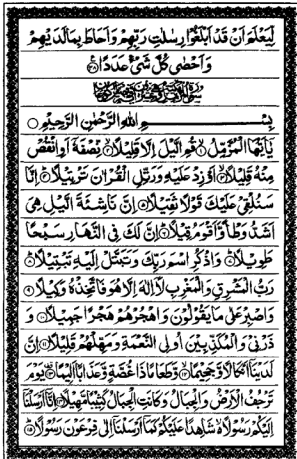 لِّيَعْلَمَ أَنْ قَدْ أَبْلَغُوا رِسٰلٰتِ رَبِّهِمْ وَأَحَاطَ بِمَا لَدَيْهِمْ
وَأَحْصٰى كُلَّ شَيْءٍ عَدَدًا ۝٢٨
بِسْمِ اللهِ الرَّحْمٰنِ الرَّحِيْمِ ۝
يٰٓأَيُّهَا الْمُزَّمِّلُ ۝١ قُمِ الَّيْلَ إِلَّا قَلِيْلًا ۝٢ نِّصْفَهٗٓ أَوِ انْقُصْ
مِنْهُ قَلِيْلًا ۝٣ أَوْ زِدْ عَلَيْهِ وَرَتِّلِ الْقُرْاٰنَ تَرْتِيْلًا ۝٤ إِنَّا
سَنُلْقِيْ عَلَيْكَ قَوْلًا ثَقِيْلًا ۝٥ إِنَّ نَاشِئَةَ الَّيْلِ هِيَ
أَشَدُّ وَطْأً وَّأَقْوَمُ قِيْلًا ۝٦ إِنَّ لَكَ فِي النَّهَارِ سَبْحًا
طَوِيْلًا ۝٧ وَاذْكُرِ اسْمَ رَبِّكَ وَتَبَتَّلْ إِلَيْهِ تَبْتِيْلًا ۝٨
رَبُّ الْمَشْرِقِ وَالْمَغْرِبِ لَآ إِلٰهَ إِلَّا هُوَ فَاتَّخِذْهُ وَكِيْلًا ۝٩
وَاصْبِرْ عَلٰى مَا يَقُوْلُوْنَ وَاهْجُرْهُمْ هَجْرًا جَمِيْلًا ۝١٠ وَ
ذَرْنِيْ وَالْمُكَذِّبِيْنَ أُولِي النَّعْمَةِ وَمَهِّلْهُمْ قَلِيْلًا ۝١١ إِنَّ
لَدَيْنَآ أَنْكَالًا وَّجَحِيْمًا ۝١٢ وَّطَعَامًا ذَا غُصَّةٍ وَّعَذَابًا أَلِيْمًا ۝١٣ يَوْمَ
تَرْجُفُ الْأَرْضُ وَالْجِبَالُ وَكَانَتِ الْجِبَالُ كَثِيْبًا مَّهِيْلًا ۝١٤ إِنَّآ أَرْسَلْنَآ
إِلَيْكُمْ رَسُوْلًا شَاهِدًا عَلَيْكُمْ كَمَآ أَرْسَلْنَآ إِلٰى فِرْعَوْنَ رَسُوْلًا ۝١٥